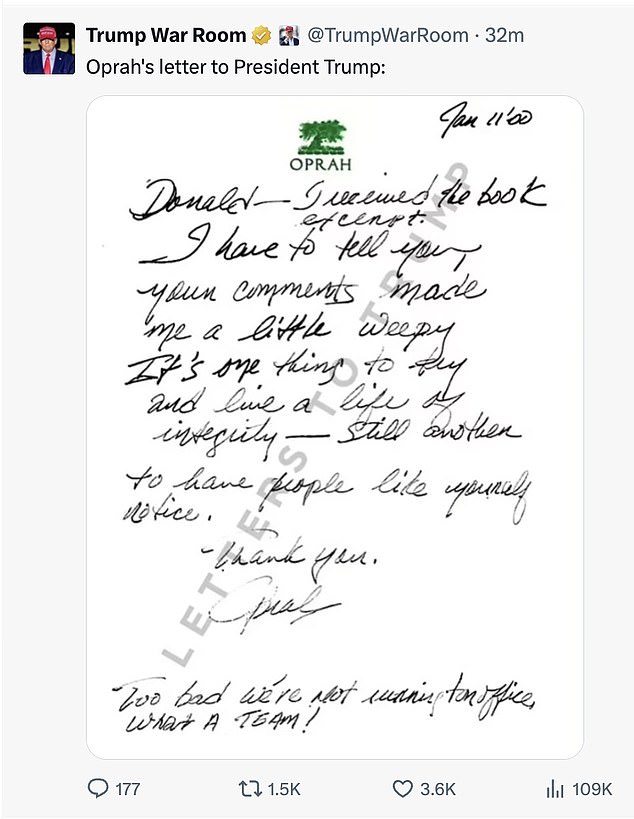 Trump War Room @TrumpWarRoom · 32m
Oprah's letter to President Trump:
Jan 11'00
OPRAH
Donald — I received the book
excerpt.
I have to tell you,
your comments made
me a little weepy
It's one thing to try
and live a life of
integrity — still another
to have people like yourself
notice.
-Thank you.
Oprah
Too bad we're not running for office,
WHAT A TEAM!
LETTERS TO TRUMP
177 1.5K 3.6K 109K